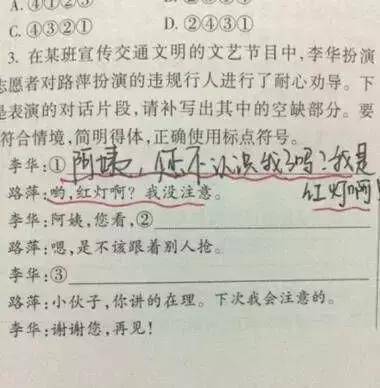 A.④①②③
C.④③②① D.②④③①
3. 在某班宣传交通文明的文艺节目中,李华扮演
志愿者对路萍扮演的违规行人进行了耐心劝导。下
是表演的对话片段,请补写出其中的空缺部分。要
符合情境,简明得体,正确使用标点符号。
李华:① 阿姨,您不认识我了吗?我是
路萍:哟,红灯啊? 我没注意。 红灯啊!
李华:阿姨,您看,②
路萍:嗯,是不该跟着别人抢。
李华:③
路萍:小伙子,你讲的在理。下次我会注意的。
李华:谢谢您,再见!